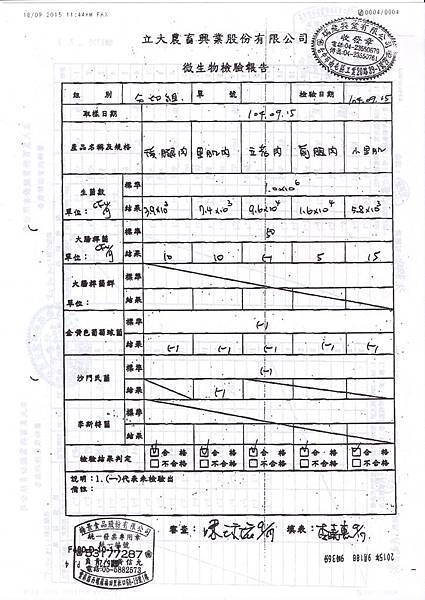 18/09 2015 11:44AM FAX
0004/0004
立大農畜興業股份有限公司
微生物檢驗報告
收發章
電話:04-23550679
組 別 分切組 單 號 檢驗日期 104.09.15
取樣日期 104.09.15
產品名稱及規格 後腿肉 里肌肉 五花肉 前腿肉 小里肌
生菌數 標準 1.0×10⁶
單位: cfu/g 結果 3.9×10³ 7.4×10³ 9.6×10⁴ 1.6×10⁴ 5.8×10³
大腸桿菌 標準 50
單位: cfu/g 結果 10 10 (-) 5 15
大腸桿菌群 標準
單位: 結果
金黃色葡萄球菌 標準 (-)
結果 (-) (-) (-) (-) (-)
沙門氏菌 標準 (-)
結果 (-)
李斯特菌 標準
結果
檢驗結果判定 ☑合 格 ☑合 格 ☑合 格 ☑合 格 ☑合 格
□不合格 □不合格 □不合格 □不合格 □不合格
說明:1.(一)代表未檢驗出
備註:
審查: 填表:
食品股份有限公司
統一發票專用章
53177287
電話:05-5882573
2015年 9月18日